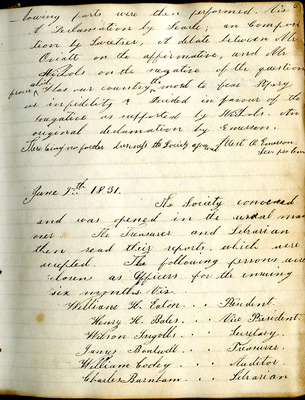 lowing parts were then performed. Viz
A Declamation by Searle; an Composi
tion by Sweetser, A debate between Mr
Oviatt on the affirmative, and Mr
Nichols on the negative of the question
Has our country more to fear Popery
or infidelity & decided in favour of the
negative as supported by Nichols. An
original declamation by Emerson.
There being no further business the Society
Emerson,
Sec. pro tem
June 7th 1831.
The Society convened
and was opened in the usual man
ner. The Treasurer and Librarian
then read their reports, which were
accepted. The following persons were
chosen as officers for the ensuing
six months Viz.
William H. Eaton . . . President.
Henry H. Bates . . . Vice President.
Wilson Ingalls . . . Secretary.
James Boutwell . . . Treasurer.
William Cooley . . . Auditor
Charles Burnham . . . Librarian